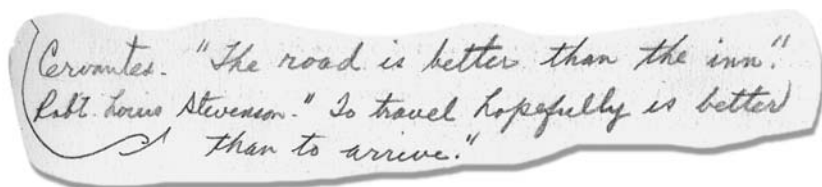 Cervantes. "The road is better than the inn."
Robt. Louis Stevenson. "To travel hopefully is better
than to arrive."